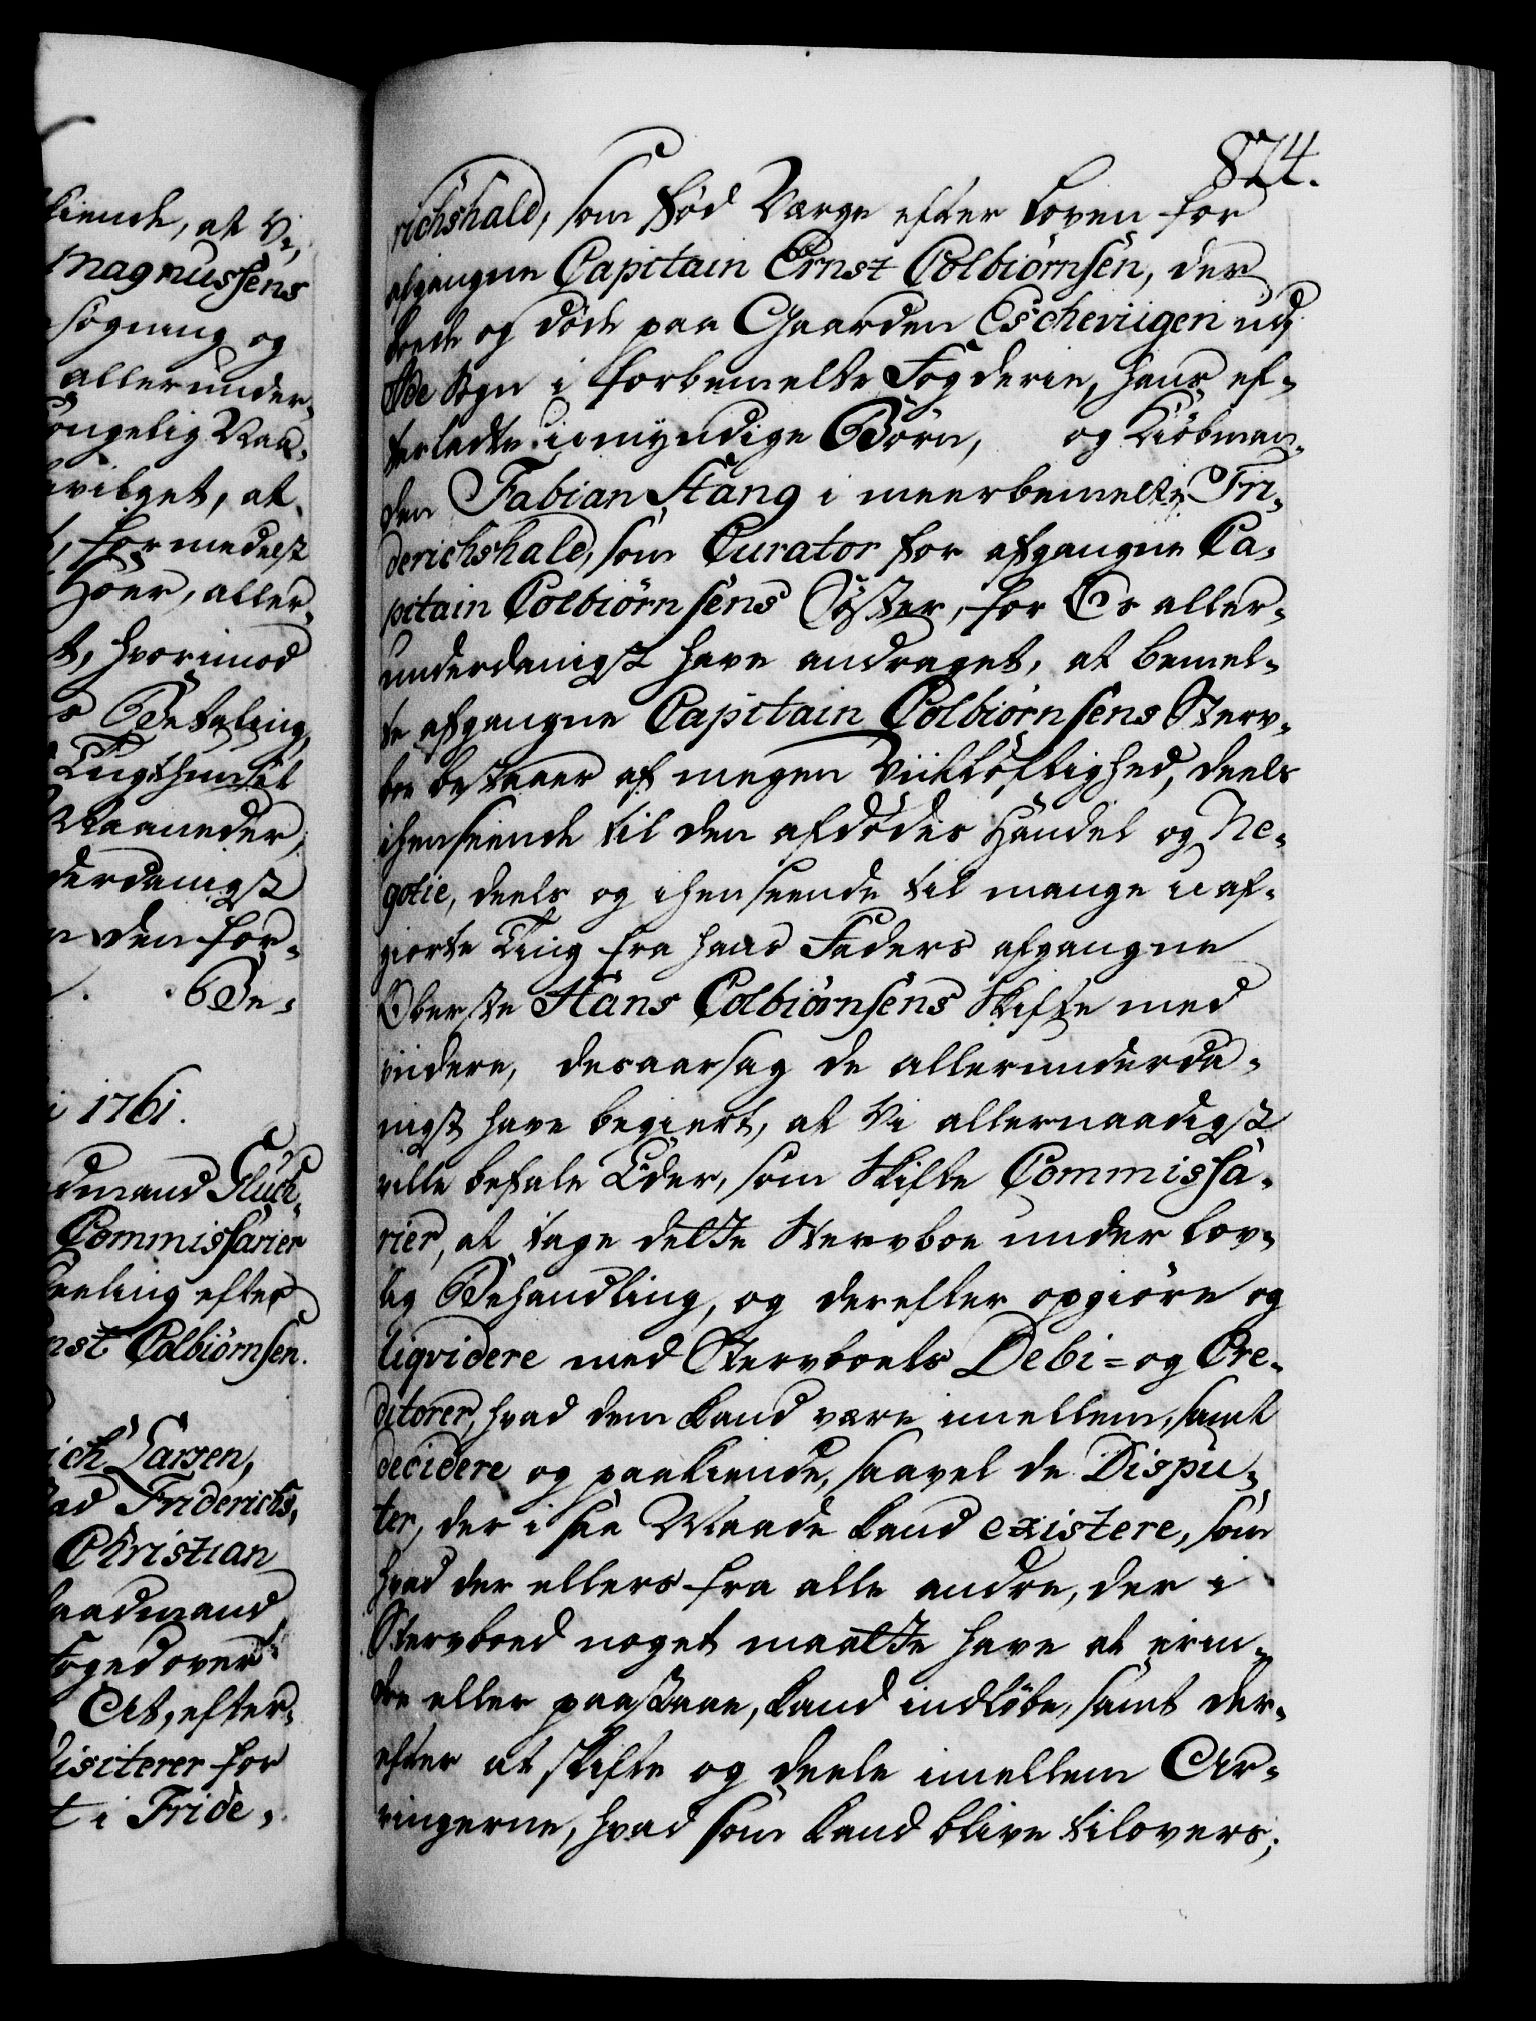 kiende, at Vi,
Magnussens
søgning og
allerunder-
ongelig Naa-
evilget, at
formedelst
Høer, aller-
t, hvorimod
Betaling
Tugthuuset
Maaneder,
derdanigst
den for-
Be-
1761.
dmand Gluch-
Commissarier
eeling efter
nst Colbiørnsen.
ich Larsen,
ad Friderichs,
Christian
aadmand
foged over
At, efter-
isiterer for
t i Fride-
874.
richshald, som fød Værge efter Loven for
afgangne Capitain Ernst Colbiørnsen, der
boede og døde paa Gaarden Escheviigen udj
Ide Sogn i forbemelte Fogderie, hans ef-
terladte umyndige Børn, og Kiøbman-
den Fabian Stang i meerbemelte Fri-
derichshald, som Curator for afgangne Ca-
pitain Colbiørnsens Søster, for Os aller-
underdanigst have andraget, at bemel-
te afgangne Capitain Colbiørnsens Sterv-
boe bestaaer af megen Vidtløftighed, deels
ihenseende til den afdødes Handel og Ne-
gotie, deels og ihenseende til mange uaf-
giorte Ting fra hans Faders afgangne
Oberste Hans Colbiørnsens Skifte med
videre, desaarsag de allerunderda-
nigst have begiert, at Vi allernaadigst
ville befale Eder, som Skifte Commissa-
rier, at tage dette Stervboe under Lov-
lig Behandling, og derefter opgiøre og
liqvidere med Stervboets Debi- og Cre-
ditorer, hvad dem kand være imellem, samt
decidere og paakiende, saavel de Dispu-
ter, der i saa Maade kand existere, som
hvad der ellers fra alle andre, der i
Stervboed noget maatte have at erin-
dre eller paastaae, kand indløbe, samt der-
efter at skifte og deele imellem Ar-
vingerne, hvad som kand blive tilovers;